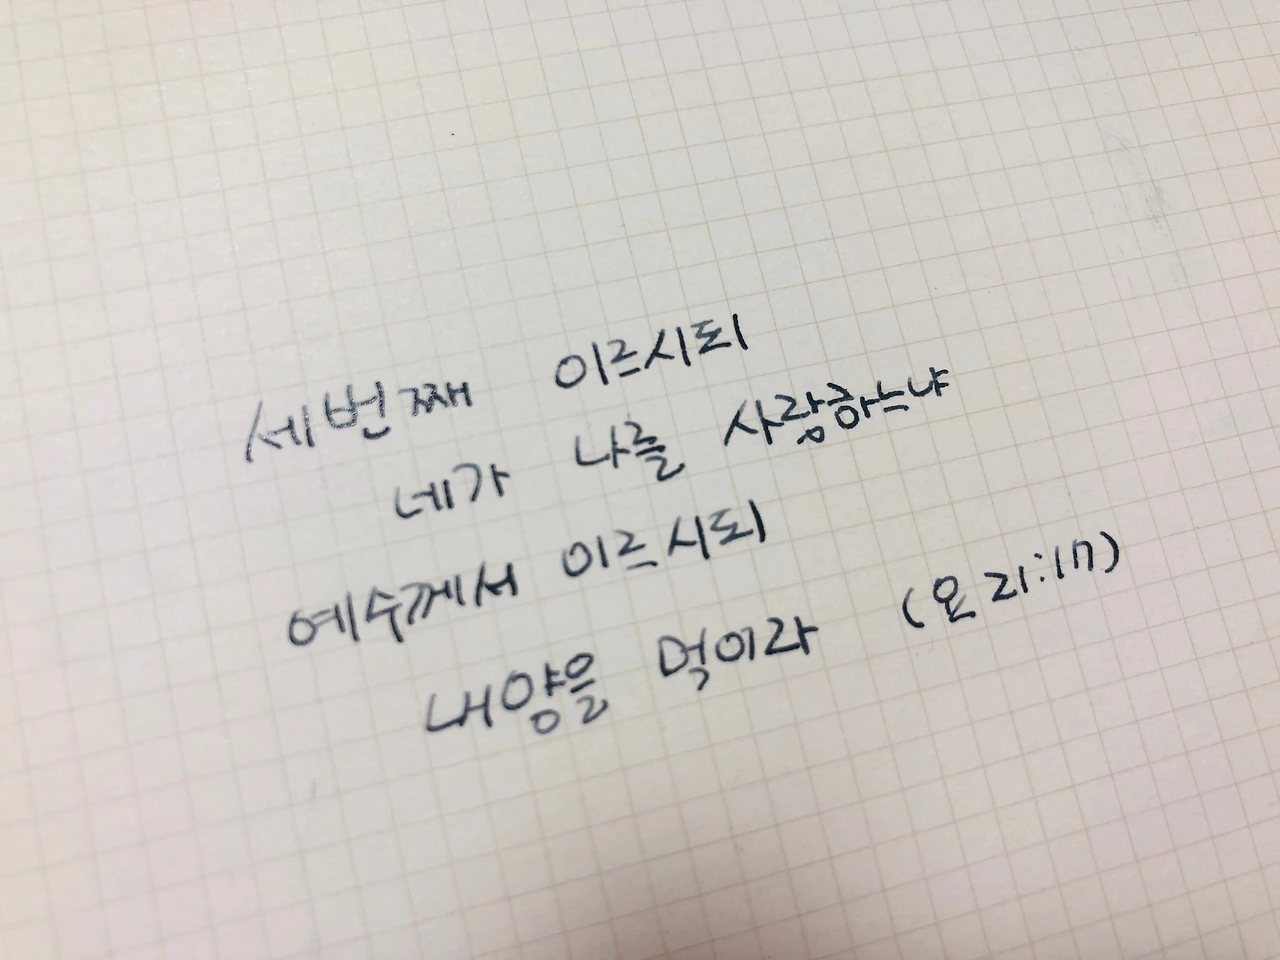 세번째 이르시되
네가 나를 사랑하느냐
예수께서 이르시되
내양을 먹이라 (요 21:17)